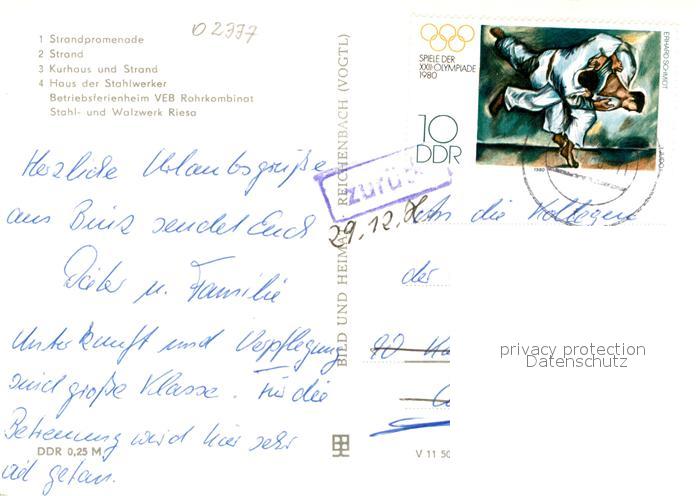 O 2377
1 Strandpromenade
2 Strand
3 Kurhaus und Strand
4 Haus der Stahlwerker
Betriebsferienheim VEB Rohrkombinat
Stahl- und Walzwerk Riesa
Herzliche Urlaubsgrüße
aus Binz sendet Euch
Dieter u. Familie
Unterkunft und Verpflegung
sind große Klasse. Für die
Betreuung wird hier sehr
viel getan.
DDR 0,25 M
BILD UND HEIMAT REICHENBACH (VOGTL)
SPIELE DER
XXII. OLYMPIADE
1980
10
DDR
ERHARD SCHMIDT
1980
zurück
29.12.
An die Kollegen
der
90
V 11 50
privacy protection
Datenschutz